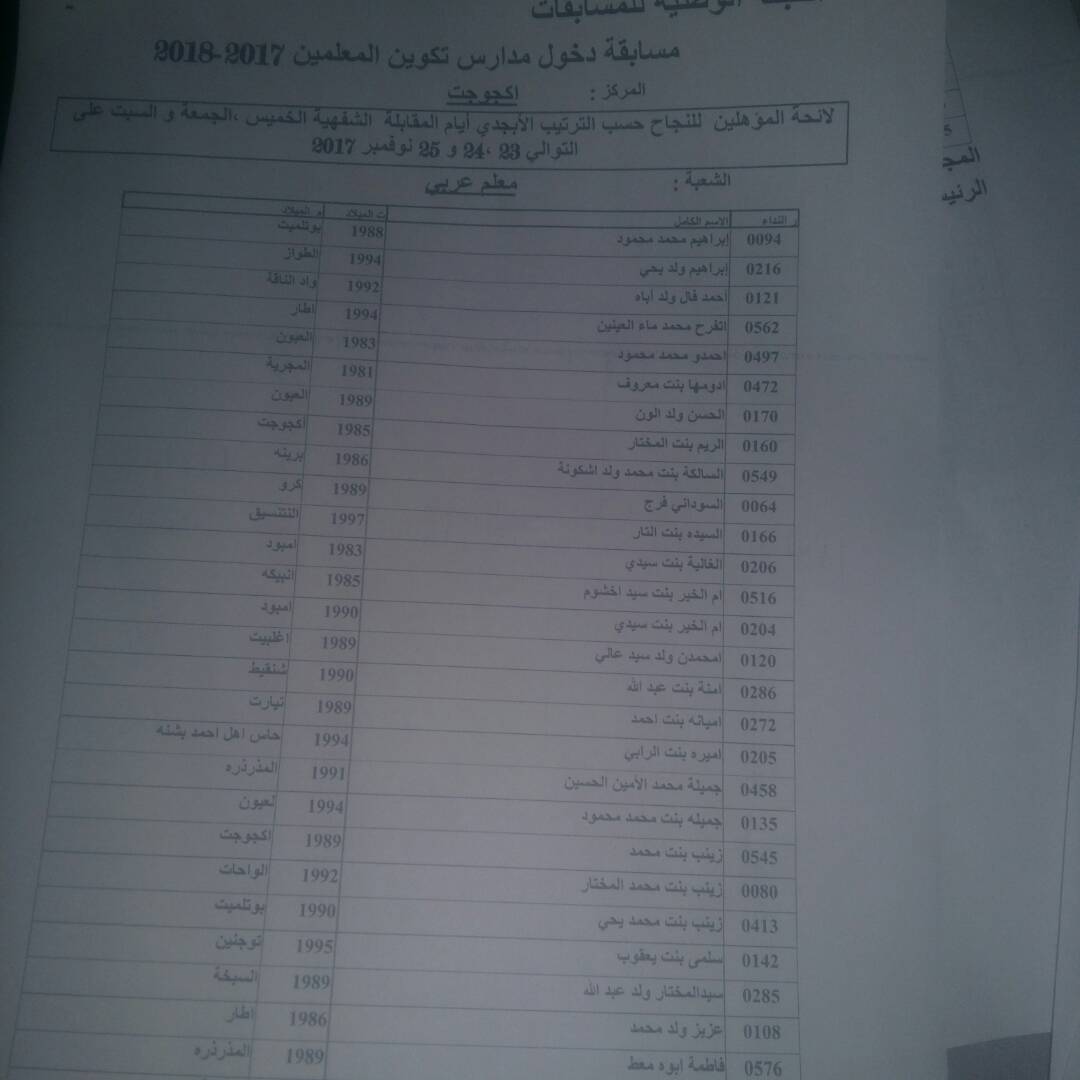 الوطنية للمسابقات
مسابقة دخول مدارس تكوين المعلمين 2017-2018
المركز : اكجوجت
لائحة المؤهلين للنجاح حسب الترتيب الأبجدي أيام المقابلة الشفهية الخميس ،الجمعة و السبت على
التوالي 23 ،24 و 25 نوفمبر 2017
الشعبة : معلم عربي
ر النداء الاسم الكامل ت الميلاد م الميلاد
0094 إبراهيم محمد محمود 1988 بوتلميت
0216 إبراهيم ولد يحي 1994 الطواز
0121 أحمد فال ولد أباه 1992 واد الناقة
0562 اتفرح محمد ماء العينين 1994 اطار
0497 احمدو محمد محمود 1983 العيون
0472 ادومها بنت معروف 1981 المجرية
0170 الحسن ولد الون 1989 العيون
0160 الريم بنت المختار 1985 أكجوجت
0549 السالكة بنت محمد ولد اشكونة 1986 برينه
0064 السوداني فرج 1989 كرو
0166 السيده بنت التار 1997 التنسيق
0206 الغالية بنت سيدي 1983 امبود
0516 ام الخير بنت سيد اخشوم 1985 انبيكه
0204 ام الخير بنت سيدي 1990 امبود
0120 امحمدن ولد سيد عالي 1989 اغلبيت
0286 امنة بنت عبد الله 1990 شنقيط
0272 اميانه بنت احمد 1989 تيارت
0205 اميره بنت الرابي 1994 حاس اهل احمد بشنه
0458 جميلة محمد الأمين الحسين 1991 المذرذره
0135 جميله بنت محمد محمود 1994 لعيون
0545 زينب بنت محمد 1989 اكجوجت
0080 زينب بنت محمد المختار 1992 الواحات
0413 زينب بنت محمد يحي 1990 بوتلميت
0142 سلمى بنت يعقوب 1995 توجنين
0285 سيدالمختار ولد عبد الله 1989 السبخة
0108 عزيز ولد محمد 1986 اطار
0576 فاطمة ابوه معط 1989 المذرذره
5
المج
الرئيس